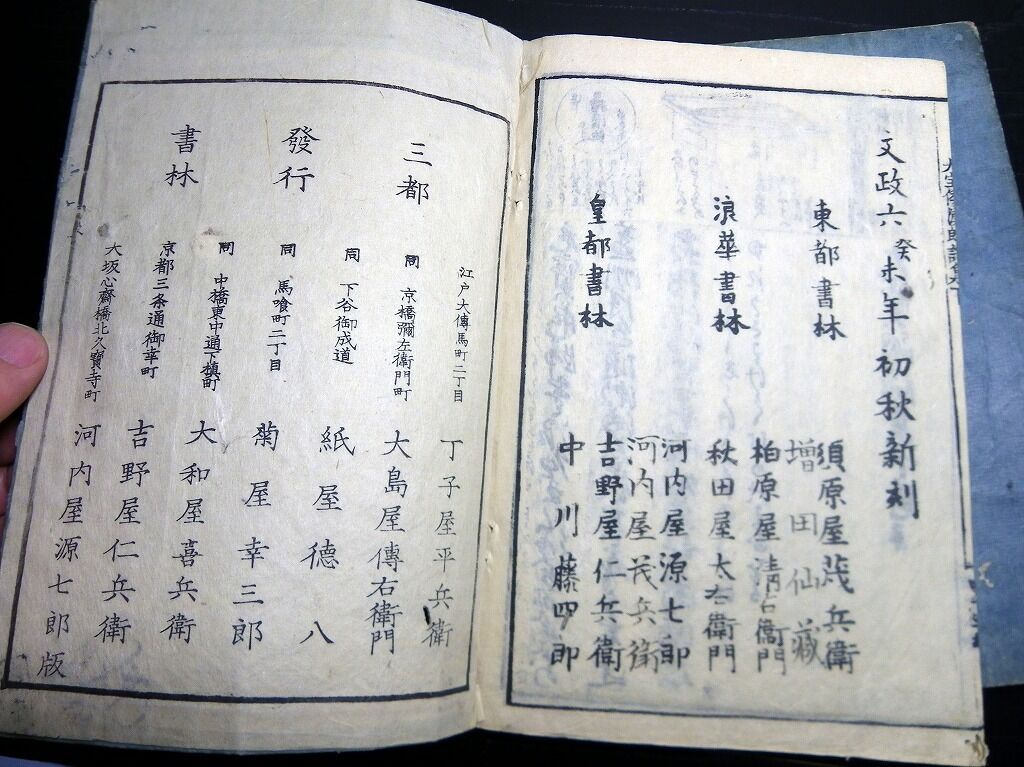 文政六癸未年初秋新刻
東都書林
須原屋茂兵衛
増田仙藏
浪華書林
柏原屋清右衞門
秋田屋太右衞門
河内屋源七郎
河内屋茂兵衛
皇都書林
吉野屋仁兵衛
中川藤四郎
三都
發行
書林
江戸大傳馬町二丁目
丁子屋平兵衛
同 京橋彌左衞門町
大島屋傳右衛門
同 下谷御成道
紙屋徳八
同 馬喰町二丁目
菊屋幸三郎
同 中橋東中通下槇町
大和屋喜兵衛
京都三条通御幸町
吉野屋仁兵衛
大坂心齋橋北久寶寺町
河内屋源七郎版